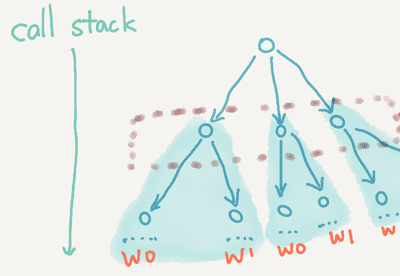 call stack
W0 W1 W0 W1 W